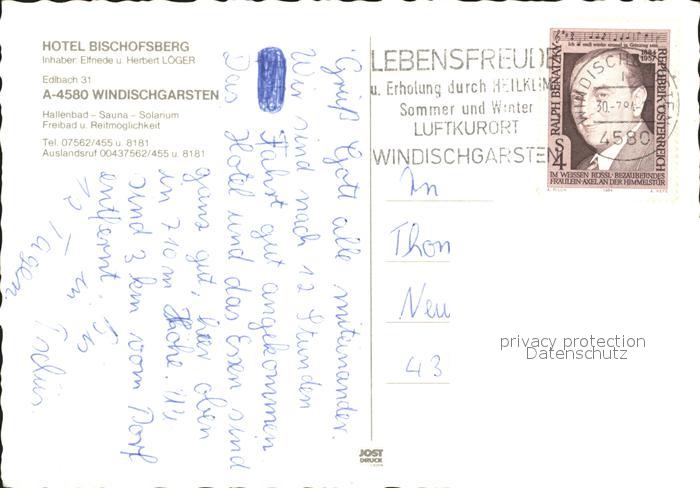 HOTEL BISCHOFSBERG
Inhaber: Elfriede u. Herbert LÖGER
Edlbach 31
A-4580 WINDISCHGARSTEN
Hallenbad – Sauna – Solarium
Freibad u. Reitmöglichkeit
Tel. 07562/455 u. 8181
Auslandsruf 00437562/455 u. 8181
Grüß Gott alle miteinander.
Wir sind nach 12 Stunden
Fahrt gut angekommen.
Das Hotel und das Essen sind
ganz gut, hier oben
in 710 m Höhe. Wir
sind 3 km vom Dorf
entfernt. Bis
in 12 Tagen
Tschüs.
LEBENSFREUDE
u. Erholung durch HEILKLIM
Sommer und Winter
LUFTKURORT
WINDISCHGARSTEN
WINDISCHG
30.-7.84
4580
Ich muß wieder einmal in Grinzing sein
RALPH BENATZKY
1884
1957
REPUBLIK ÖSTERREICH
S 4
IM WEISSEN RÖSSL · BEZAUBERNDES
FRÄULEIN · AXEL AN DER HIMMELSTÜR
A. PILCH
1984
An
Thon
Neu
43
privacy protection
Datenschutz
JOST
DRUCK